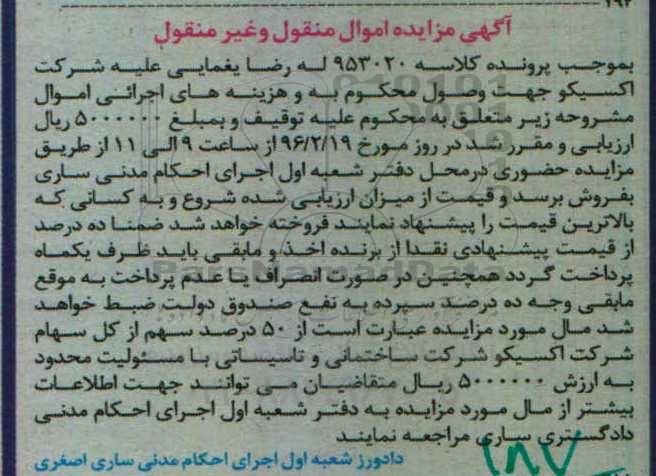 آگهی مزایده اموال منقول وغیر منقول
بموجب پرونده کلاسه ۹۵۳۰۲۰ له رضا یغمایی علیه شرکت
اکسیکو جهت وصول محکوم به و هزینه های اجرائی اموال
مشروحه زیر متعلق به محکوم علیه توقیف و بمبلغ ۵۰۰۰۰۰۰ ریال
ارزیابی و مقرر شد در روز مورخ ۹۶/۲/۱۹ از ساعت ۹ الی ۱۱ از طریق
مزایده حضوری درمحل دفتر شعبه اول اجرای احکام مدنی ساری
بفروش برسد و قیمت از میزان ارزیابی شده شروع و به کسانی که
بالاترین قیمت را پیشنهاد نمایند فروخته خواهد شد ضمنا ده درصد
از قیمت پیشنهادی نقدا از برنده اخذ و مابقی باید ظرف یکماه
پرداخت گردد همچنین در صورت انصراف یا عدم پرداخت به موقع
مابقی وجه ده درصد سپرده به نفع صندوق دولت ضبط خواهد
شد مال مورد مزایده عبارت است از ۵۰ درصد سهم از کل سهام
شرکت اکسیکو شرکت ساختمانی و تاسیساتی با مسئولیت محدود
به ارزش ۵۰۰۰۰۰۰ ریال متقاضیان می توانند جهت اطلاعات
بیشتر از مال مورد مزایده به دفتر شعبه اول اجرای احکام مدنی
دادگستری ساری مراجعه نمایند
دادورز شعبه اول اجرای احکام مدنی ساری اصغری
۱۸۷
ParsNamadData